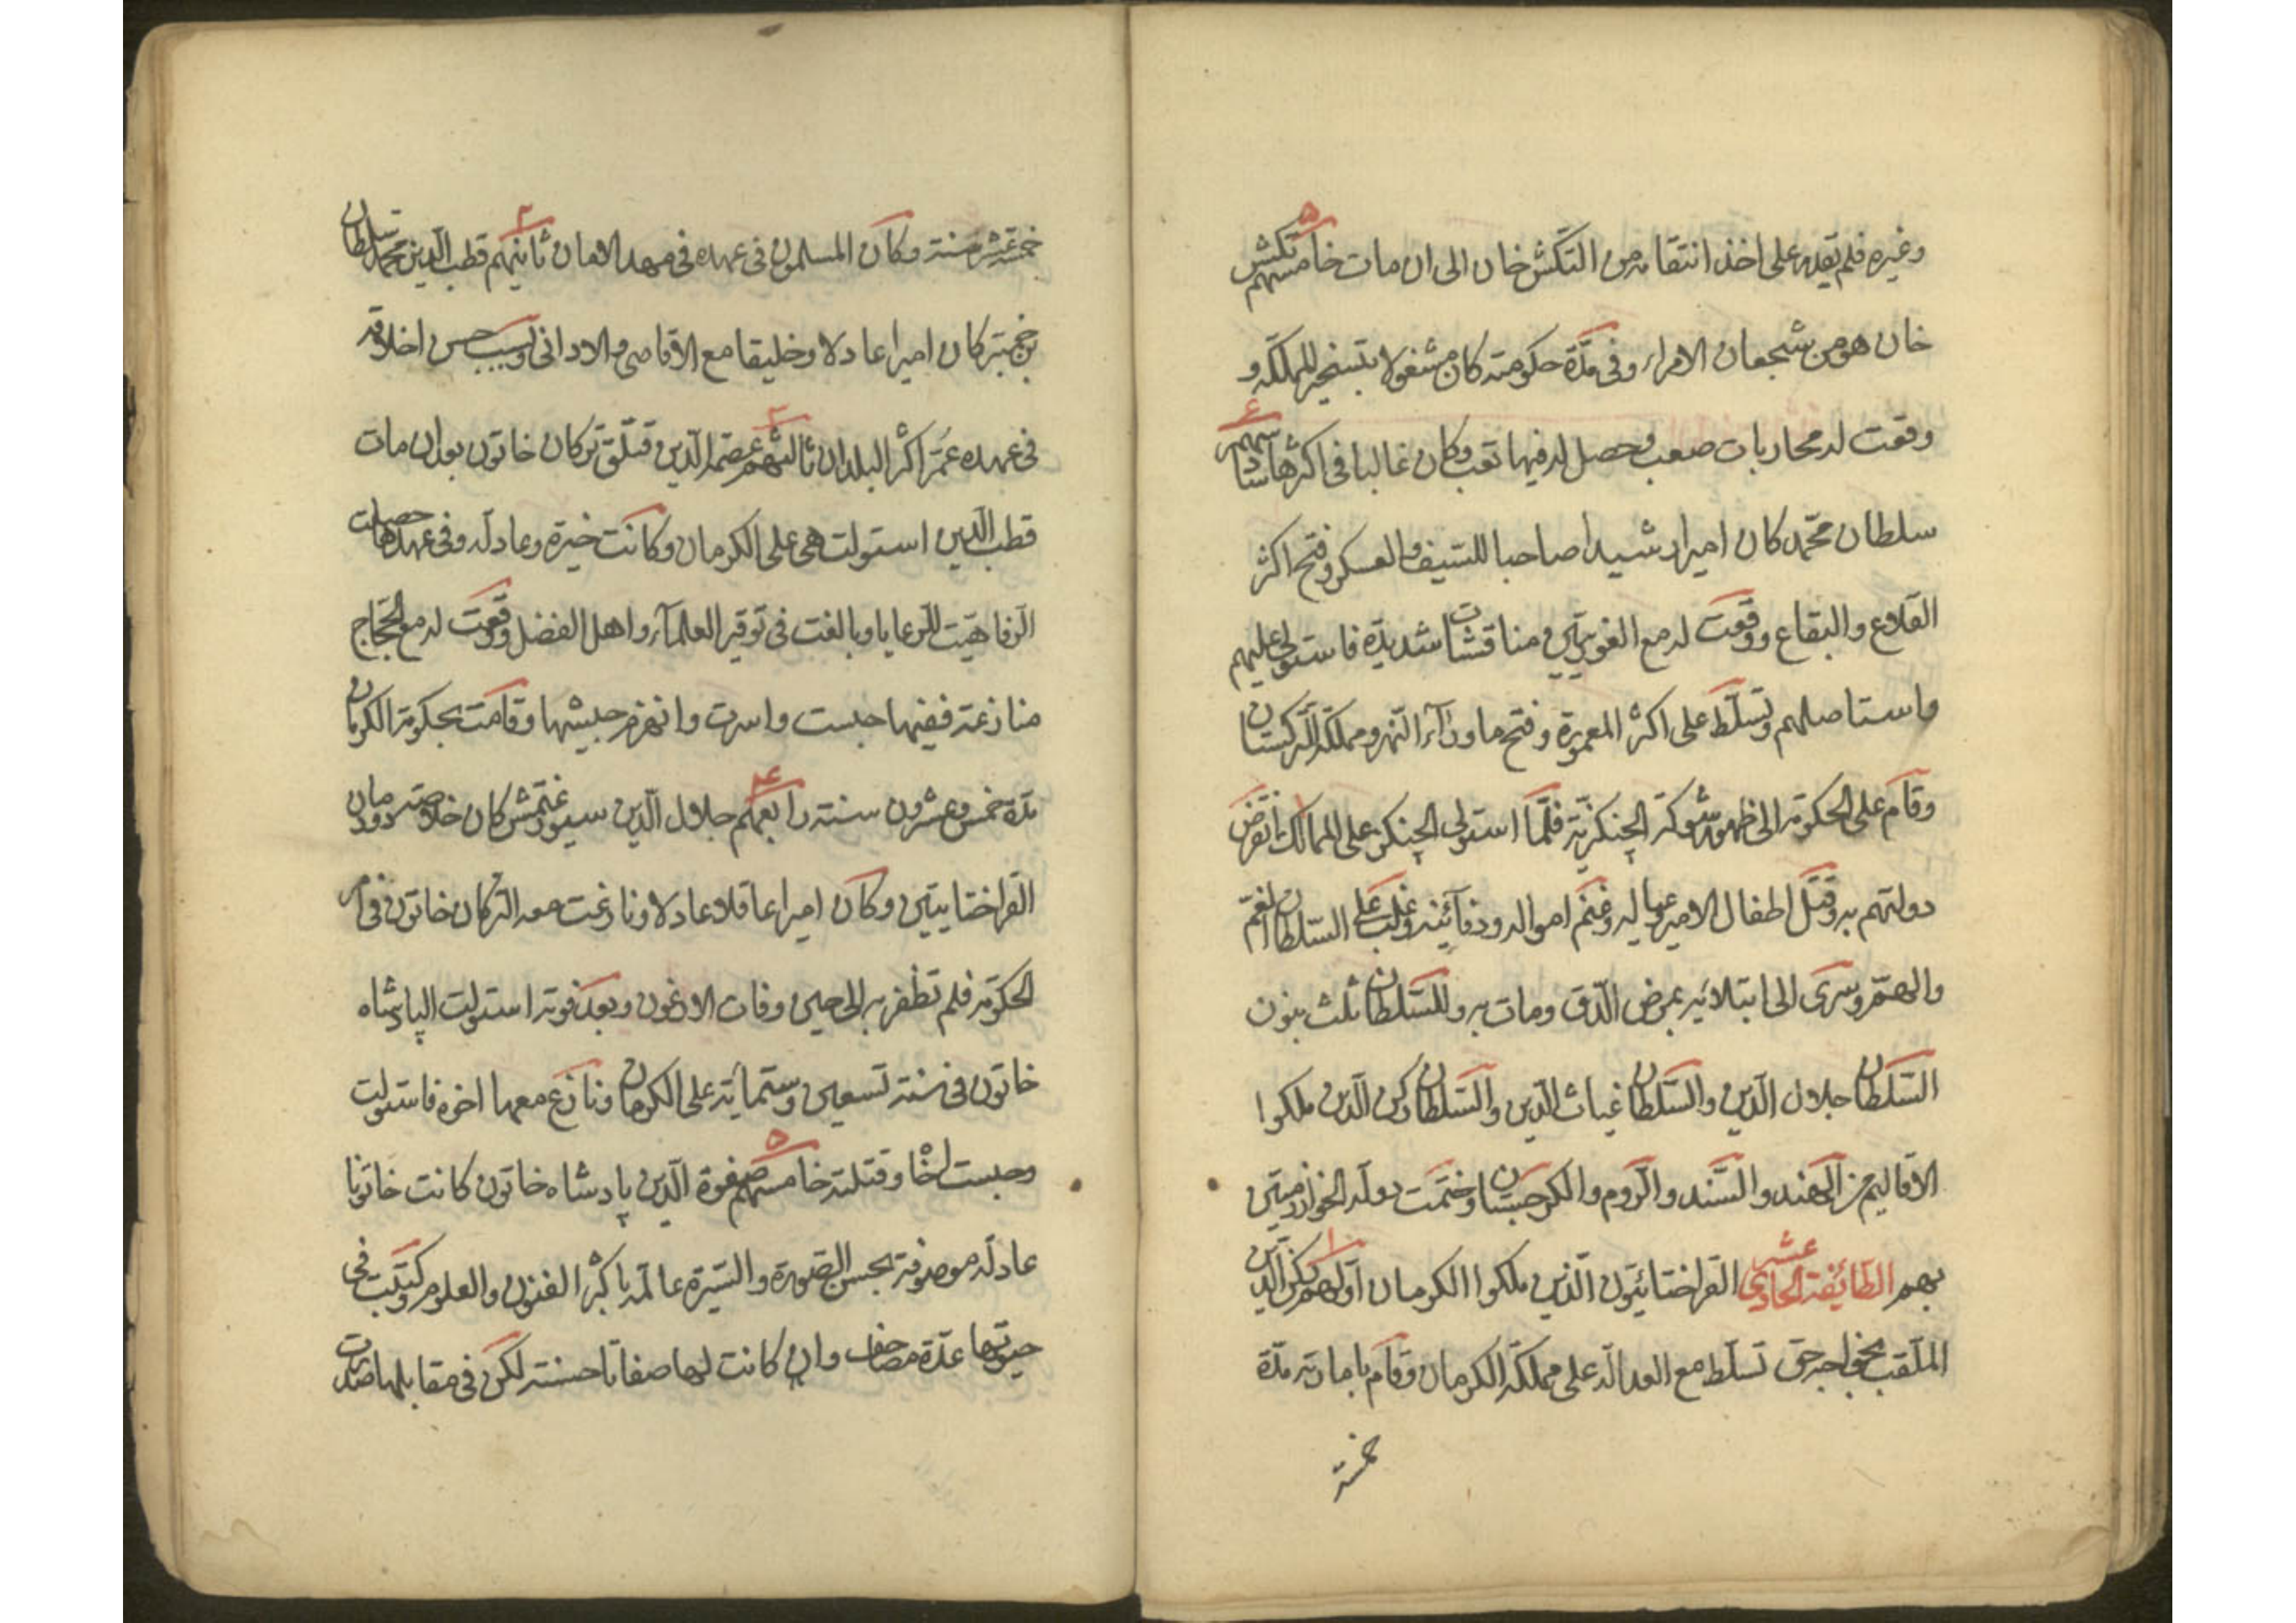 وغيره فلم يقدر على اخذ انتقامه من التكش خان الى ان مات خامسهم تكش
خان هو من شجعان الامراء وفى مدّة حكومته كان مشغولا بتسخير المملكة و
وقعت له محاربات صعب وحصل له فيها تعب وكان غالبا فى اكثرها سادسهم
سلطان محمّد كان اميرا رشيدا صاحبا للسّيف والعسكر وفتح اكثر
القلاع والبقاع ووقعت له مع الغوريّين مناقشات شديدة فاستولى عليهم
واستاصلهم وتسلّط على اكثر المعمورة وفتح ماورآء النّهر ومملكة التّركستان
وقام على الحكومة الى ظهور شوكة الچنكزيّة فلمّا استولى الچنكز على الممالك انقرض
دولتهم به وقتل اطفال الامير وعياله وغنم امواله ودفآئنه وغلب على السّلطان الغمّ
والهمّ وسرى الى ابتلائه بمرض الدّق ومات به وللسّلطان ثلث بنون
السّلطان جلال الدّين والسّلطان غياث الدّين والسّلطان ركن الدّين ملكوا
الاقاليم من الهند والسّند والرّوم والكرجستان وختمت دولة الخوارزميّين
بهم الطّائفة الحادى عشر القراختائيّون الّذين ملكوا الكرمان اوّلهم ركن الدّين
الملقّب بخواجه جق تسلّط مع العدالة على مملكة الكرمان وقام بامارته مدّة
خمسة
خمسة عشر سنة وكان المسلمون فى عهده فى مهد الامان ثانيهم قطب الدّين محمّد سلطان
بن خميتبر كان اميرا عادلا وخليقا مع الاقاصى والادانى وبسبب حسن اخلاقه
فى عهده عُمّر اكثر البلدان ثالثهم عصمة الدّين وقتلق تركان خاتون بعد ان مات
قطب الدّين استولت هى على الكرمان وكانت خيّرة وعادلة وفى عهدها حصلت
الرّفاهيّت للرّعايا وبالغت فى توقير العلمآء واهل الفضل ووقعت له مع الحجّاج
منازعة ففيها حبست واسرت وانهزم جيشها وقامت بحكومة الكرمان
مدّة خمس وعشرون سنة رابعهم جلال الدّين سيورغتمش كان خلاصة دودمان
القراختاييّين وكان اميرا عاقلا عادلا ونازعت معه التركان خاتون فى امر
الحكومة فلم تظفر به الى حين وفات الارغون وبعد فوته استولت الپادشاه
خاتون فى سنة تسعين وستّمائة على الكرمان ونازع معها اخوه فاستولت
وحبست اخا وقتلته خامسهم صفوة الدّين پادشاه خاتون كانت خاتونا
عادلة موصوفة بحسن الصّورة والسّيرة عالمة باكثر الفنون والعلوم وكتبت فى
حيوتها عدّة مصاحف وان كانت لها صفاتا حسنة لكن فى مقابلها صدرت